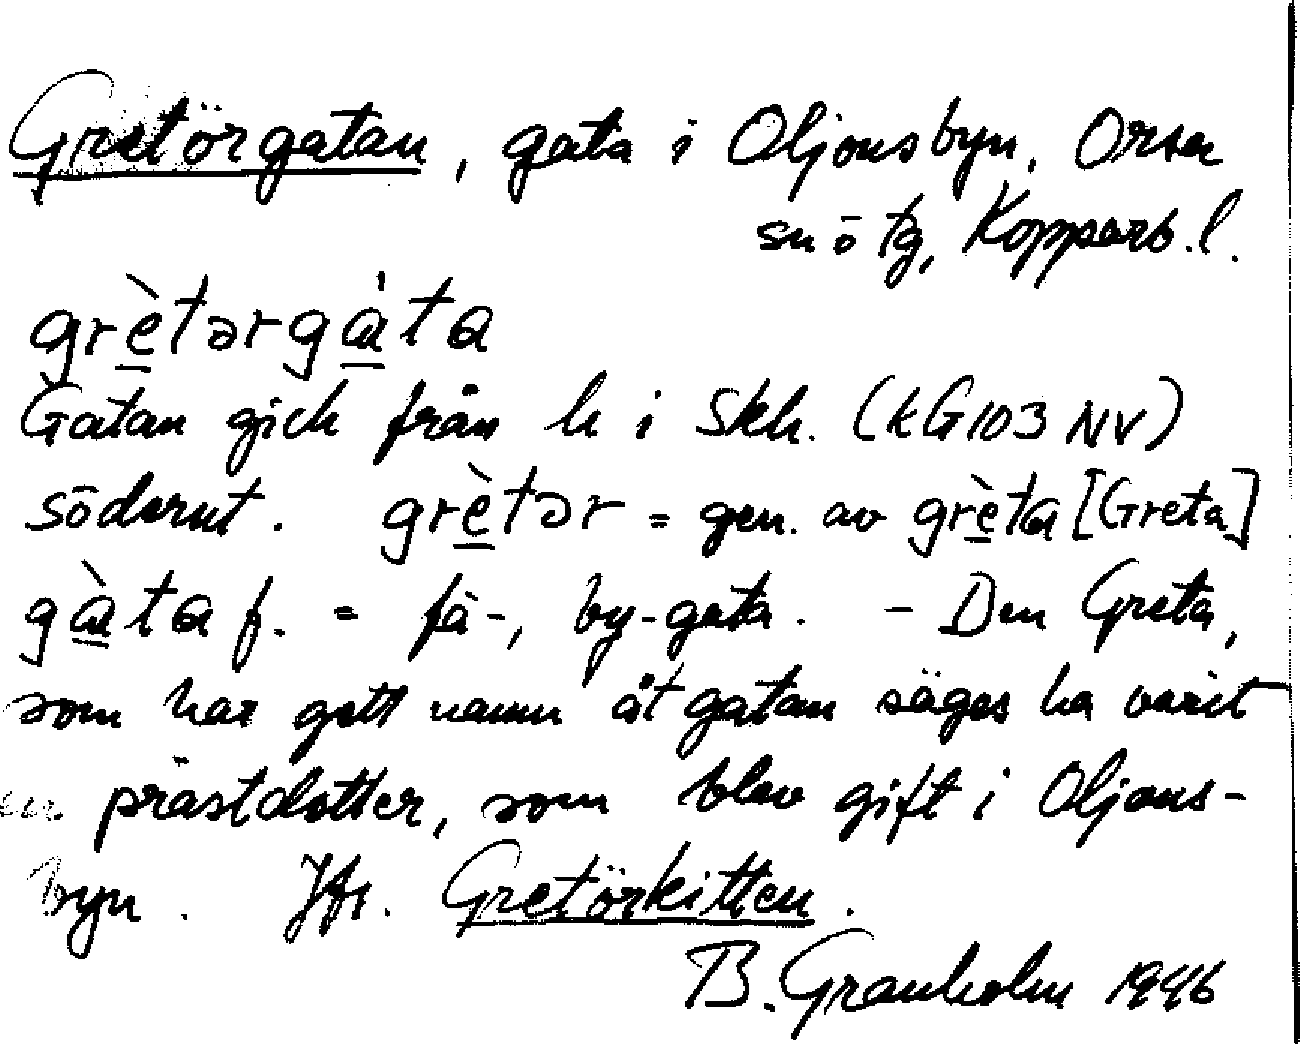 Gretörgatan, gata i Oljonsbyn, Orsa
sn o tg, Kopparb. l.
grètərgàta
Gatan gick från h i Skh. (kG103 NV)
söderut. grètər = gen. av grèta [Greta]
gàta f. = fä-, by-gata. - Den Greta,
som har gett namn åt gatan säges ha varit
en prästdotter, som blev gift i Oljons-
byn. Jfr. Gretörkitten.
B. Granholm 1946